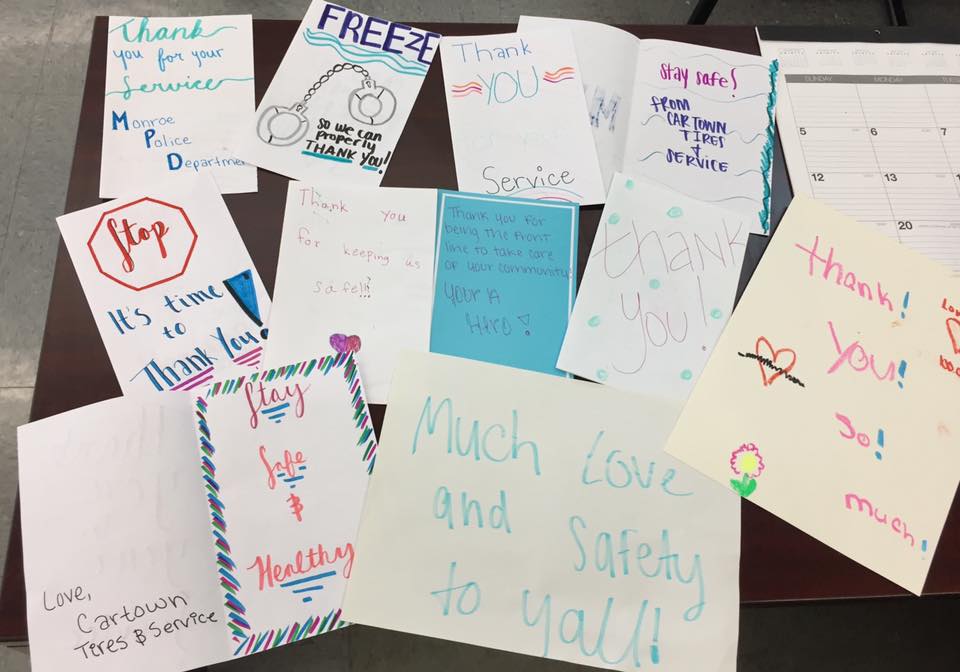 Thank
you for your
Service
Monroe
Police
Departme
FREEZE
SO WE CAN
Properly
THANK YOU!
Thank
YOU
Service
Stay Safe!
FROM
CARTOWN
TIRES
&
SERVICE
SUNDAY
MONDAY
5
6
7
12
13
20
Stop
It's time
to
Thank You!
Thank you
for keeping us
safe!!!
Thank you for
being the front
line to take care
of your community!
Your A
Hero!
Thank
you!
Thank!
You!
So!
much!
Stay
Safe
&
Healthy
Love,
Cartown
Tires & Service
Much Love
and Safety
to yall!